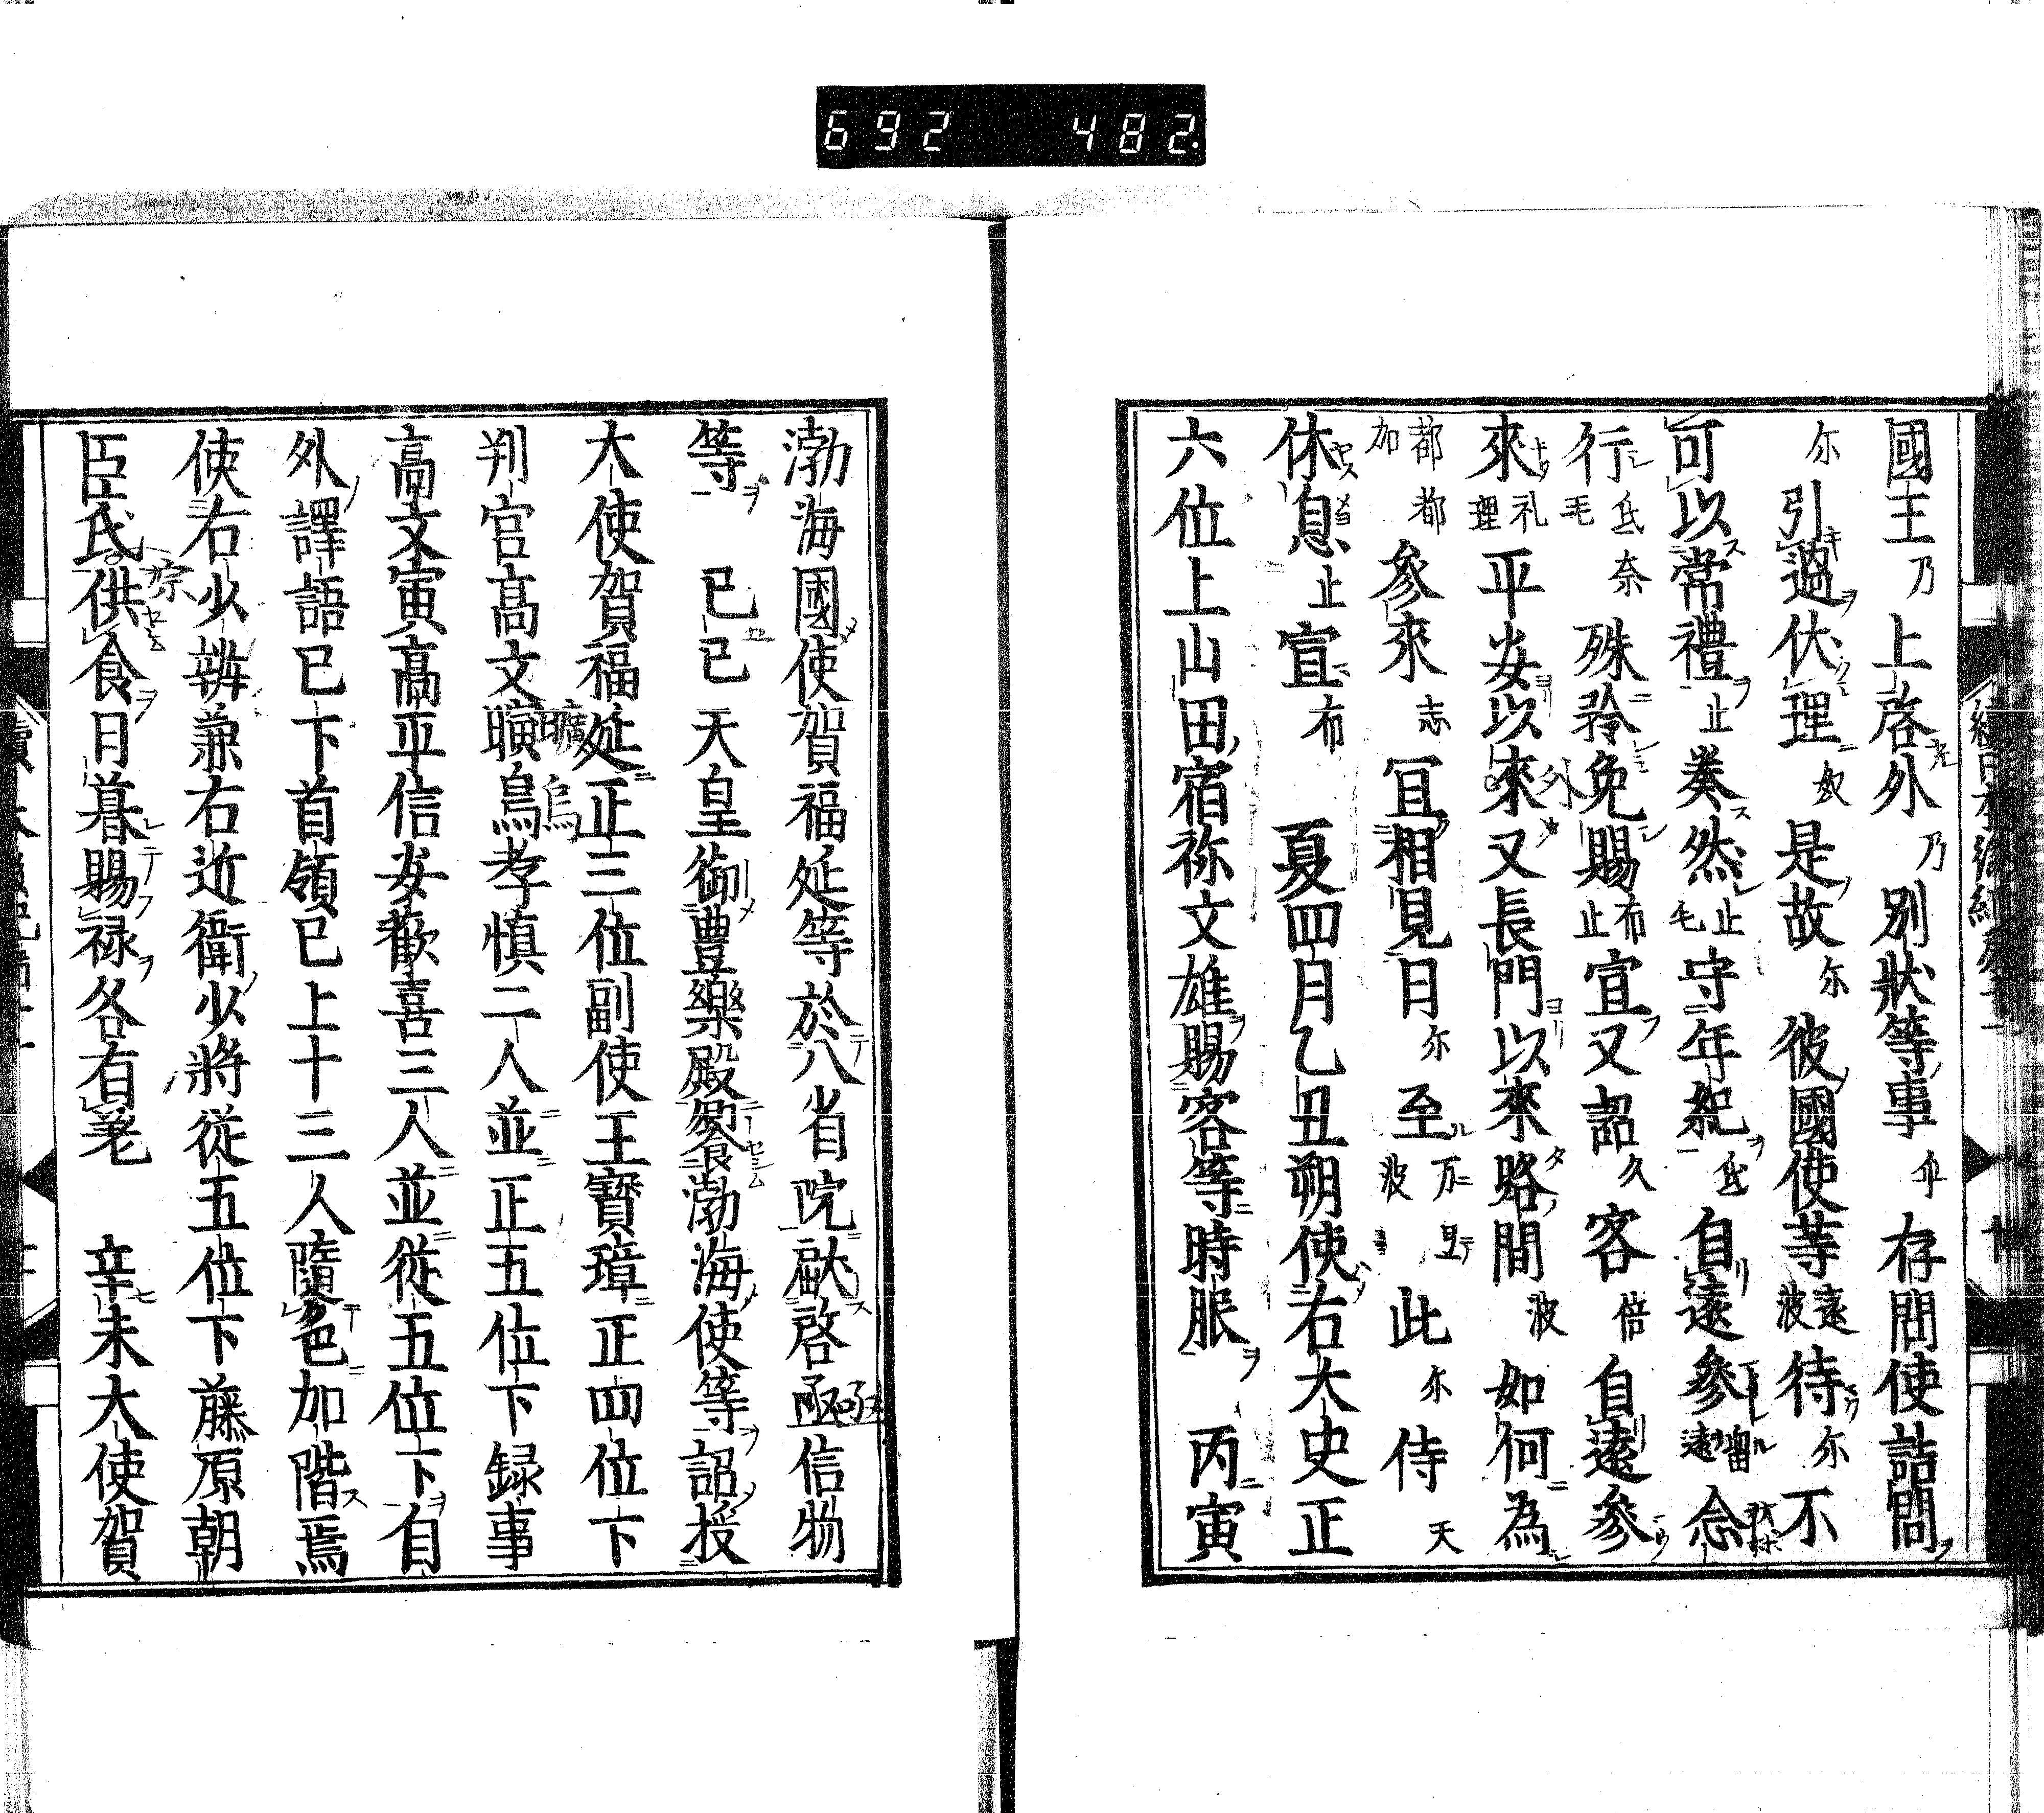 692 482
國王乃上啓外乃別狀等事乎存問使詰問
尓引過伏理奴是故尓彼國使等波遠待尓不
可以常禮止奏然止毛守年紀氐自遠參留遠念
行氐奈毛殊矜免賜布止宣又詔久客倍自遠參
來礼理平安以來又長門以來路間波如何為
都都加參來志冝相見日尓至万里波此尓侍天
休息止宣布 夏四月乙丑朔使右大史正
六位上山田宿祢文雄賜客等時服 丙寅
渤海國使賀福延等於八省院獻啓函信物
等 已已天皇御豊樂殿饗渤海使等詔授
大使賀福延正三位副使王寶璋正四位下
判官高文暊烏孝慎二人並正五位下録事
高文寅高平信安歡喜三人並從五位下自
外譯語已下首領已上十三人隨色加階焉
使右少辨兼右近衛少將從五位下藤原朝
臣氏供食日暮賜禄各有差 辛未大使賀